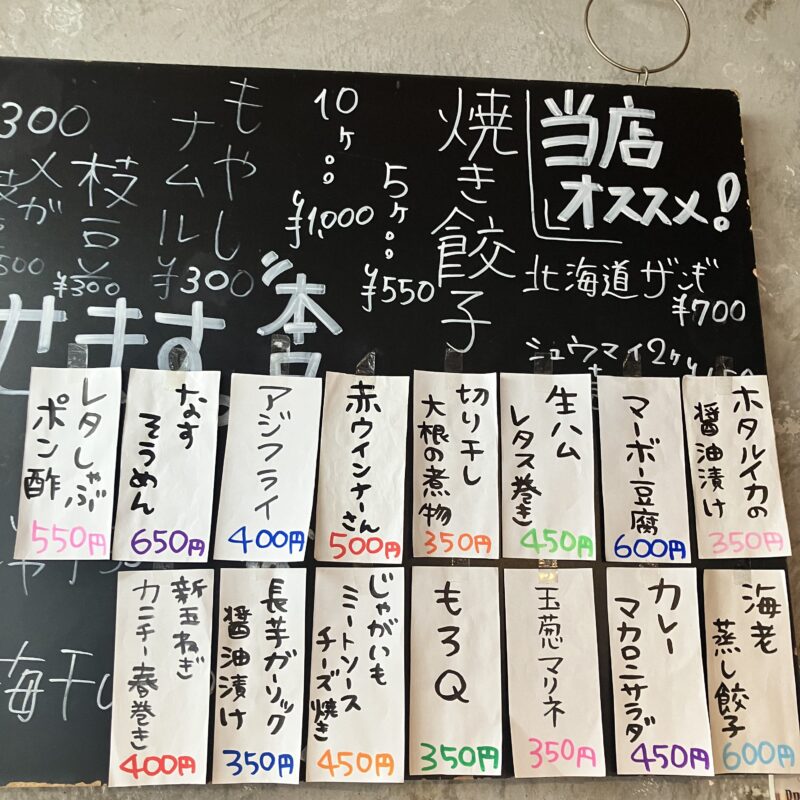 当店
オススメ!
北海道ザンギ
¥700
シュウマイ2ヶ
焼き餃子
5ヶ。。
¥550
10ヶ。。
¥1,000
もやし
ナムル
¥300
枝豆
¥300
300
500
せます。
ホタルイカの
醤油漬け
350円
マーボー豆腐
600円
生ハム
レタス巻き
450円
切り干し
大根の煮物
350円
赤ウインナーさん
500円
アジフライ
400円
なす
そうめん
650円
レタしゃぶ
ポン酢
550円
海老
蒸し餃子
600円
カレー
マカロニサラダ
450円
玉葱マリネ
350円
もろQ
350円
じゃがいも
ミートソース
チーズ焼き
450円
長芋ガーリック
醤油漬け
350円
新玉ねぎ
カニチー春巻き
400円
梅干し